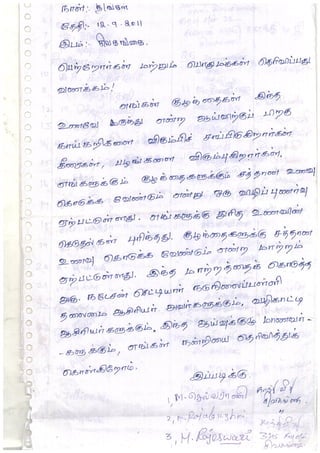 நாள்: சிவகங்கை
தேதி: 12.9.2011
இடம்: சிவகங்கை.
பெற்றோர்கள் மற்றும் பொதுமக்கள் தெரிவிப்பது
வணக்கம்!
எங்கள் குழந்தைகள் இந்த
உணவே மருந்து என்ற ஆய்விற்குப் பிறகு
காய்கறிகளை விரும்பிச் சாப்பிடுகிறார்கள்
கீரைகள், பழங்களை விரும்புகிறார்கள்.
எங்களுக்கும் குழந்தைகளுக்கும் சத்தான உணவு
கொடுக்க வேண்டும் என்று ஒரு விழிப்புணர்வு
ஏற்பட்டுள்ளது. எங்களுக்கு துரித உணவின்
கெடுதல்கள் புரிந்தது. குழந்தைகளுக்கு சத்தான
உணவு கொடுக்க வேண்டும் என்ற மாற்றம்
ஏற்பட்டுள்ளது. இந்த மாற்றத்தைக் கொடுத்த
செட்டியார் நடுநிலைப்பள்ளி
தலைமை ஆசிரியர் அவர்களுக்கும், வழிகாட்டி
ஆசிரியர்களுக்கும், இந்த ஆய்வுக்குழு மாணவர்-
களுக்கும், எங்கள் நன்றியை தெரிவித்துக்
கொள்கிறோம்.
இப்படிக்கு
1, M. செல்வராணி
2,
3, M. ராஜேஸ்வரி